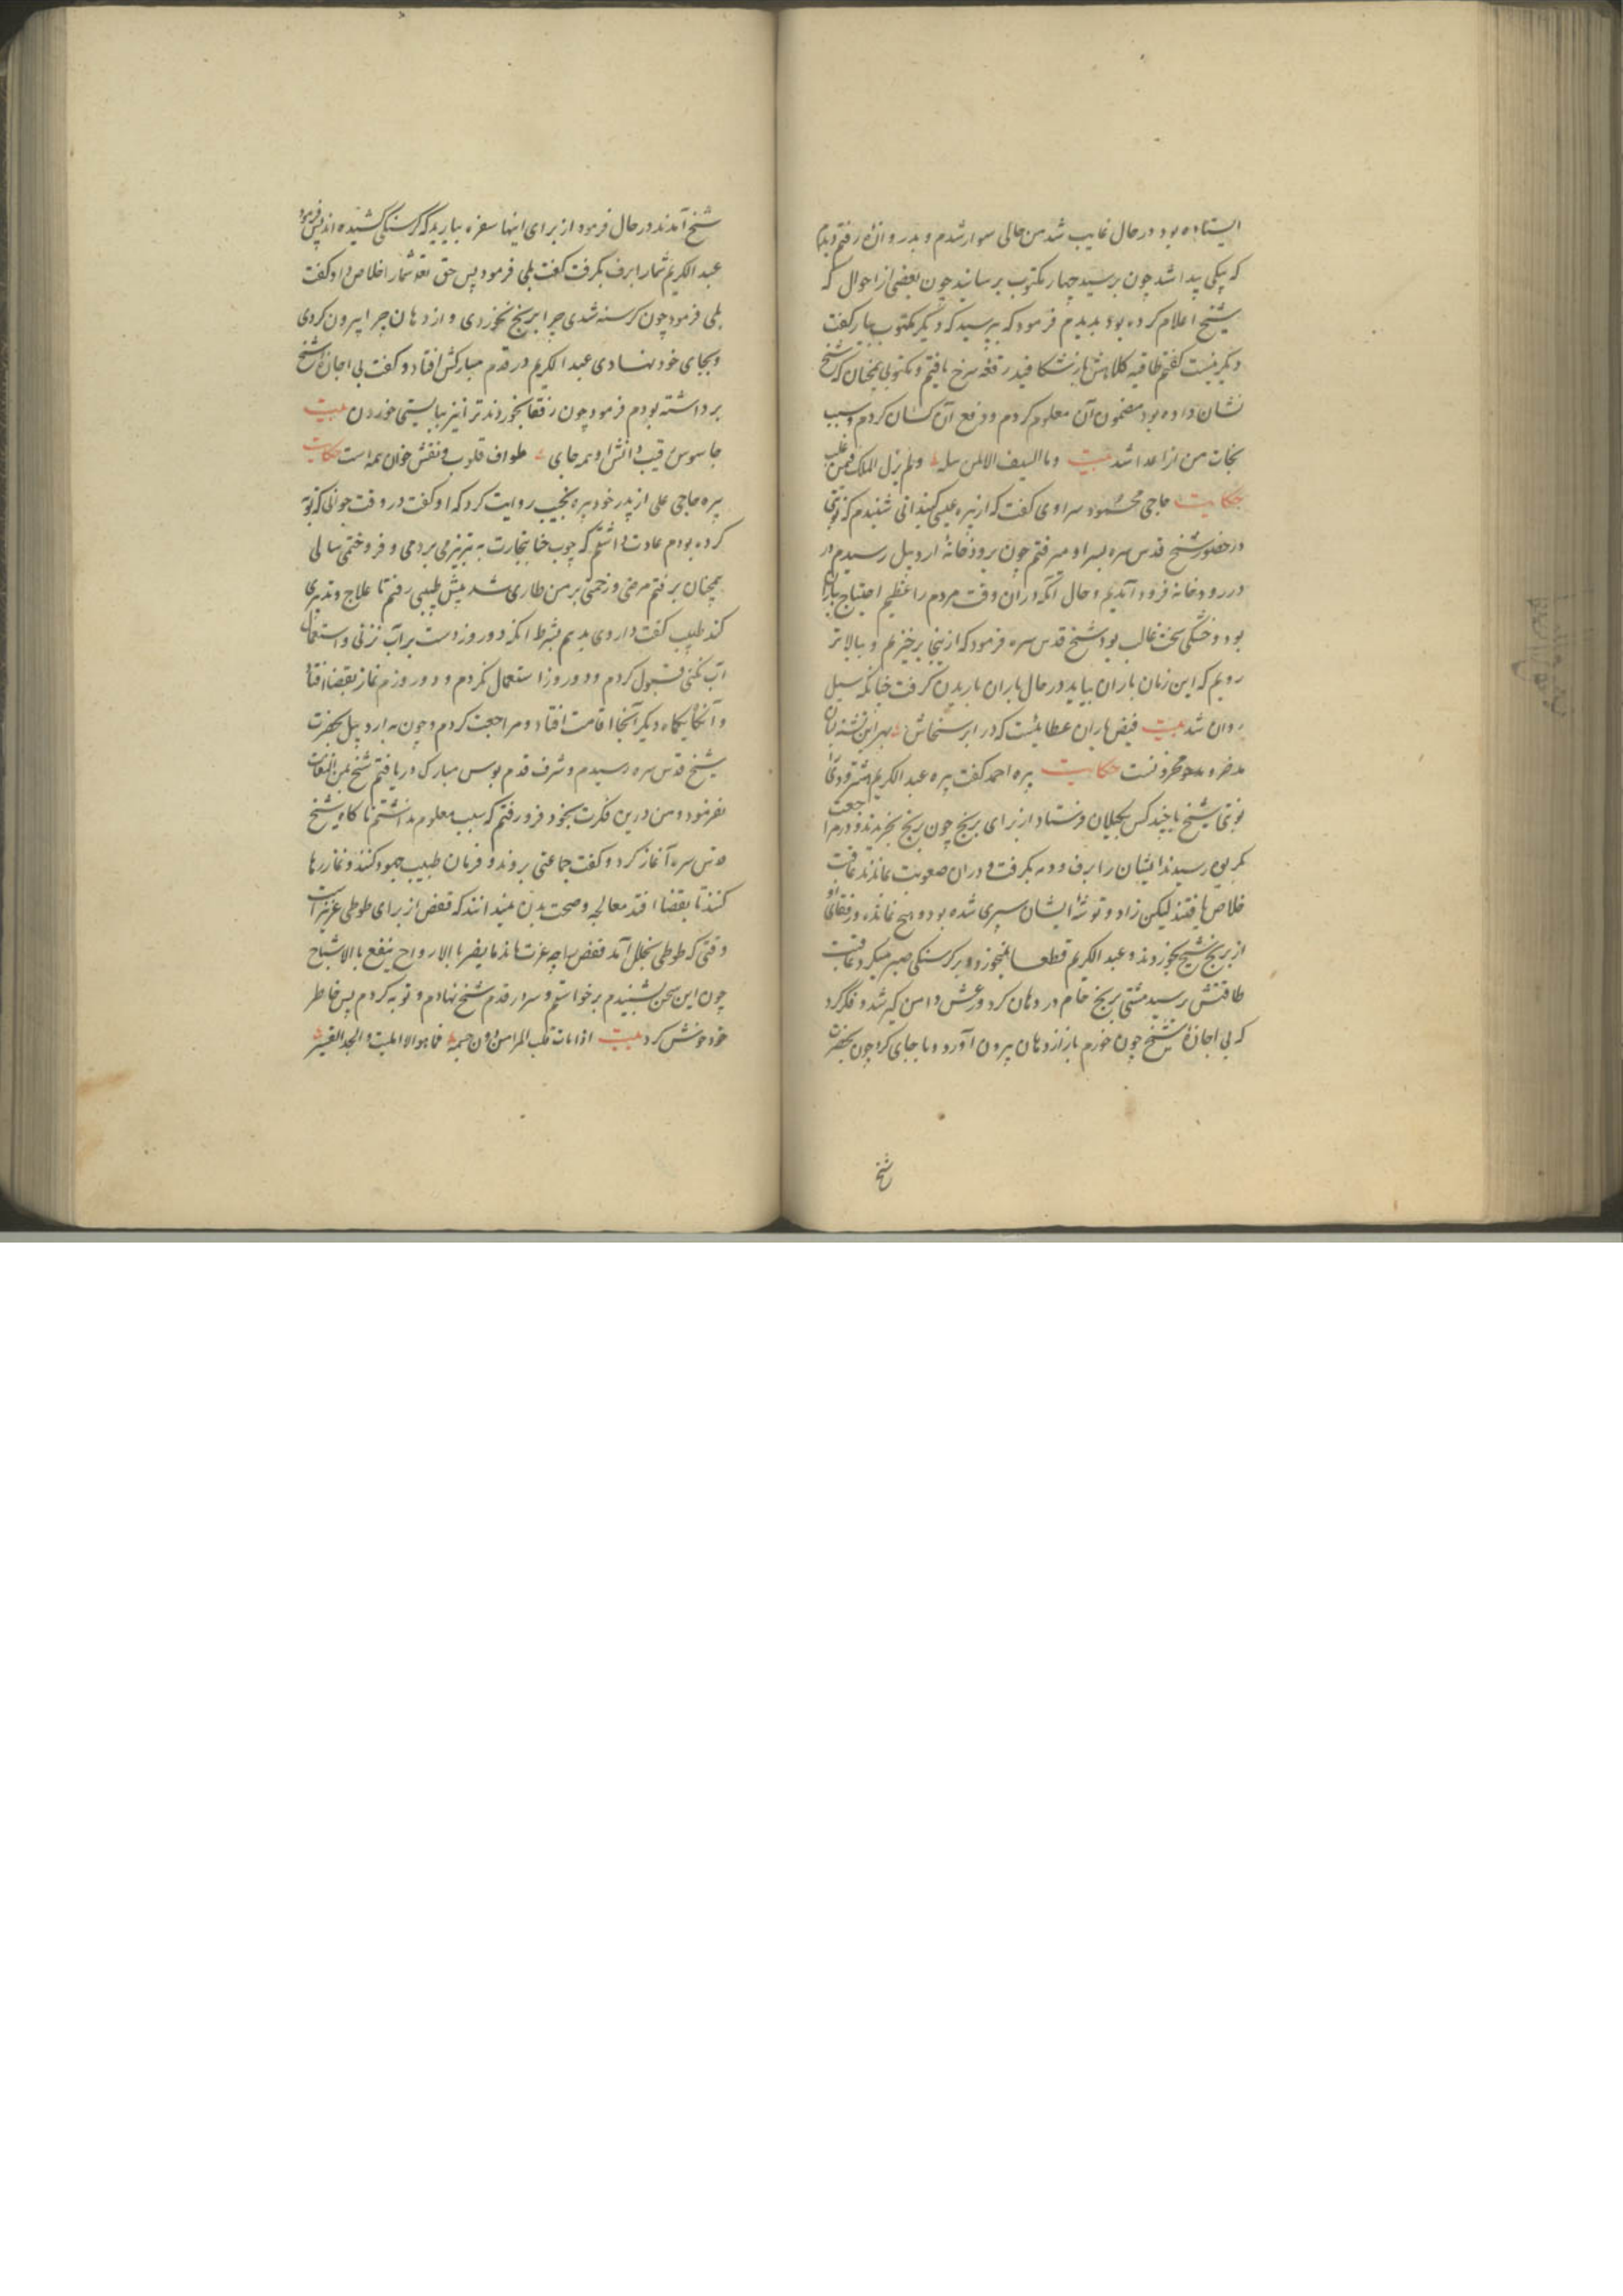 ایستاده بود در حال غایب شد من حالی سوار شدم و بدروازه رفتم دیدم
که پیکی پیدا شد چون برسید چهار مکتوب برسانید چون بعضی از احوال که
شیخ اعلام کرده بود بدیدم فرمود که بپرسید که دیگر مکتوب بیار گفت
دیگر نیست گفتم طاقیه کلاهش باز شکافید رقعه سرخ یافتم و مکتوبی همچنان که شیخ
نشان داده بود مضمون آن معلوم کردم و دفع آن کسان کردم و سبب
نجات من از اعدا شد بیت وما السیف الا لمن سله ولم یزل الملک فیمن غلب
حکایت حاجی محمود سراوی گفت که از پیره عیسی شنیدم که نوبتی
در حضور شیخ قدس سره بسراو میرفتم چون برودخانه اردبیل رسیدم در
در رودخانه فرود آمدیم و حال آنکه در آن وقت مردم را عظیم احتیاج بباران
بود و خشکی سخت غالب بود شیخ قدس سره فرمود که ازینجا برخیزیم و ببالاتر
رویم که این زمان باران بیاید در حال باران باریدن گرفت چنانکه سیل
روان شد بیت فیض باران عطائیست که در ابر سخاش بهر این تشنه لبان
مدخر و مدخر و نست حکایت پیره احمد گفت پیره عبد الکریم
نوبتی شیخ با چند کس بجیلان فرستاد از برای برنج چون برنج بخریدند و در مراجعت
بکریوه رسیدند ایشان را برف و دمه بگرفت و در آن صعوبت بماندند عاقبت
خلاص یافتند لیکن زاد و توشه ایشان سپری شده بود و هیچ نمانده و رفقای او
از برنج شیخ بخوردند و عبد الکریم قطعا نمیخورد و بر گرسنگی صبر میکرد عاقبت
طاقتش برسید مشتی برنج خام در دهان کرد ورعش دامن گیر شد و فکر کرد
که بی اجازه شیخ چون خورم باز از دهان بیرون آورد و با جای کرد چون بحضرت
شیخ
شیخ آمدند در حال فرمود از برای اینها سفره بیارید که گرسنگی کشیده اند پس فرمود
عبد الکریم شما را برف بگرفت گفت بلی فرمود پس حق تعالی شما را خلاص داد گفت
بلی فرمود چون گرسنه شدی چرا برنج نخوردی و از دهان چرا بیرون کردی
و بجای خود نهادی عبد الکریم در قدم مبارکش افتاد و گفت بی اجازه شیخ
برداشته بودم فرمود چون رفقا بخوردند ترا نیز ببایستی خوردن بیت
جاسوس قلب دانش او همه جای طواف قلوب و نقش خوان همه است حکایت
پیره حاجی علی از پدر خود پیره نجیب روایت کرد که او گفت در وقت جوانی که توبه
کرده بودم عادت داشتم که چوب خا بتجارت به تبریز می بردمی و فروختمی سالی
همچنان برفتم مرضی و زحمتی بر من طاری شد پیش طبیبی رفتم تا علاج و تدبیری
کند طبیب گفت داروی بدهم بشرط آنکه دو روز دست بر آب نزنی و استعمال
آب نکنی قبول کردم و دو روز استعمال نکردم و دو روزم نماز بقضا افتاد
و آنکا یکماه دیگر آنجا اقامت افتاد و مراجعت کردم و چون به اردبیل بحضرت
شیخ قدس سره رسیدم و شرف قدم بوس مبارک دریافتم شیخ بمن التفات
نفرمود و من درین فکرت بخود فرو رفتم که سبب معلوم نداشتم ناگاه شیخ
قدس سره آغاز کرد و گفت جماعتی بروند و فرمان طبیب جهود کنند و نماز رها
کنند تا بقضا افتد معالجه و صحت بدن میدانند که قفص از برای طوطی عزیز است
وقتی که طوطی بخلل آمد قفص را چه عزت ماند ما یضر بالارواح ینفع بالاشباح
چون این سخن بشنیدم برخواستم و سر در قدم شیخ نهادم و توبه کردم پس خاطر
خود خوش کرد بیت اذا مات قلب المرء من دون جسمه فما هو الا المیت و الجسد القبر